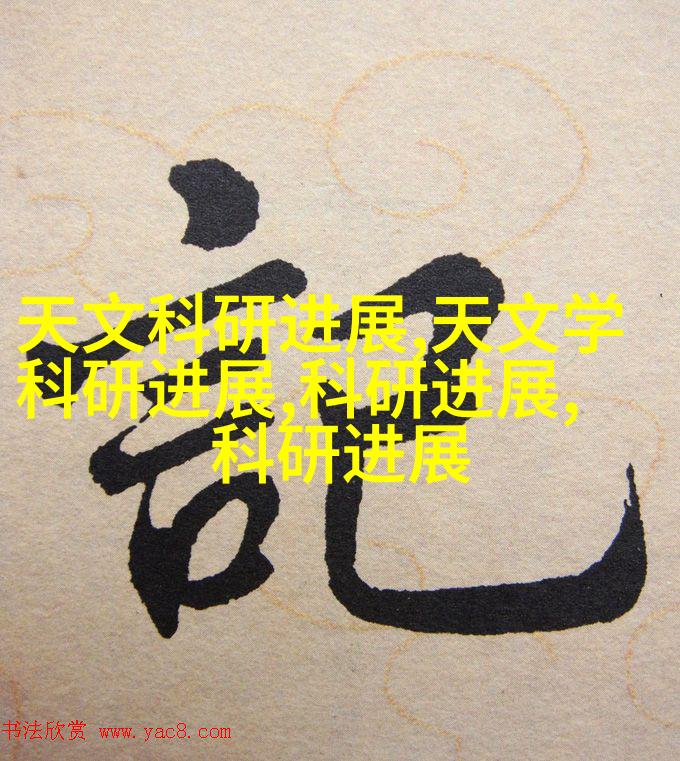 記
天文科研进展,天文学
科研进展,科研进展,
科研进展
书法欣赏 www.yac8.com